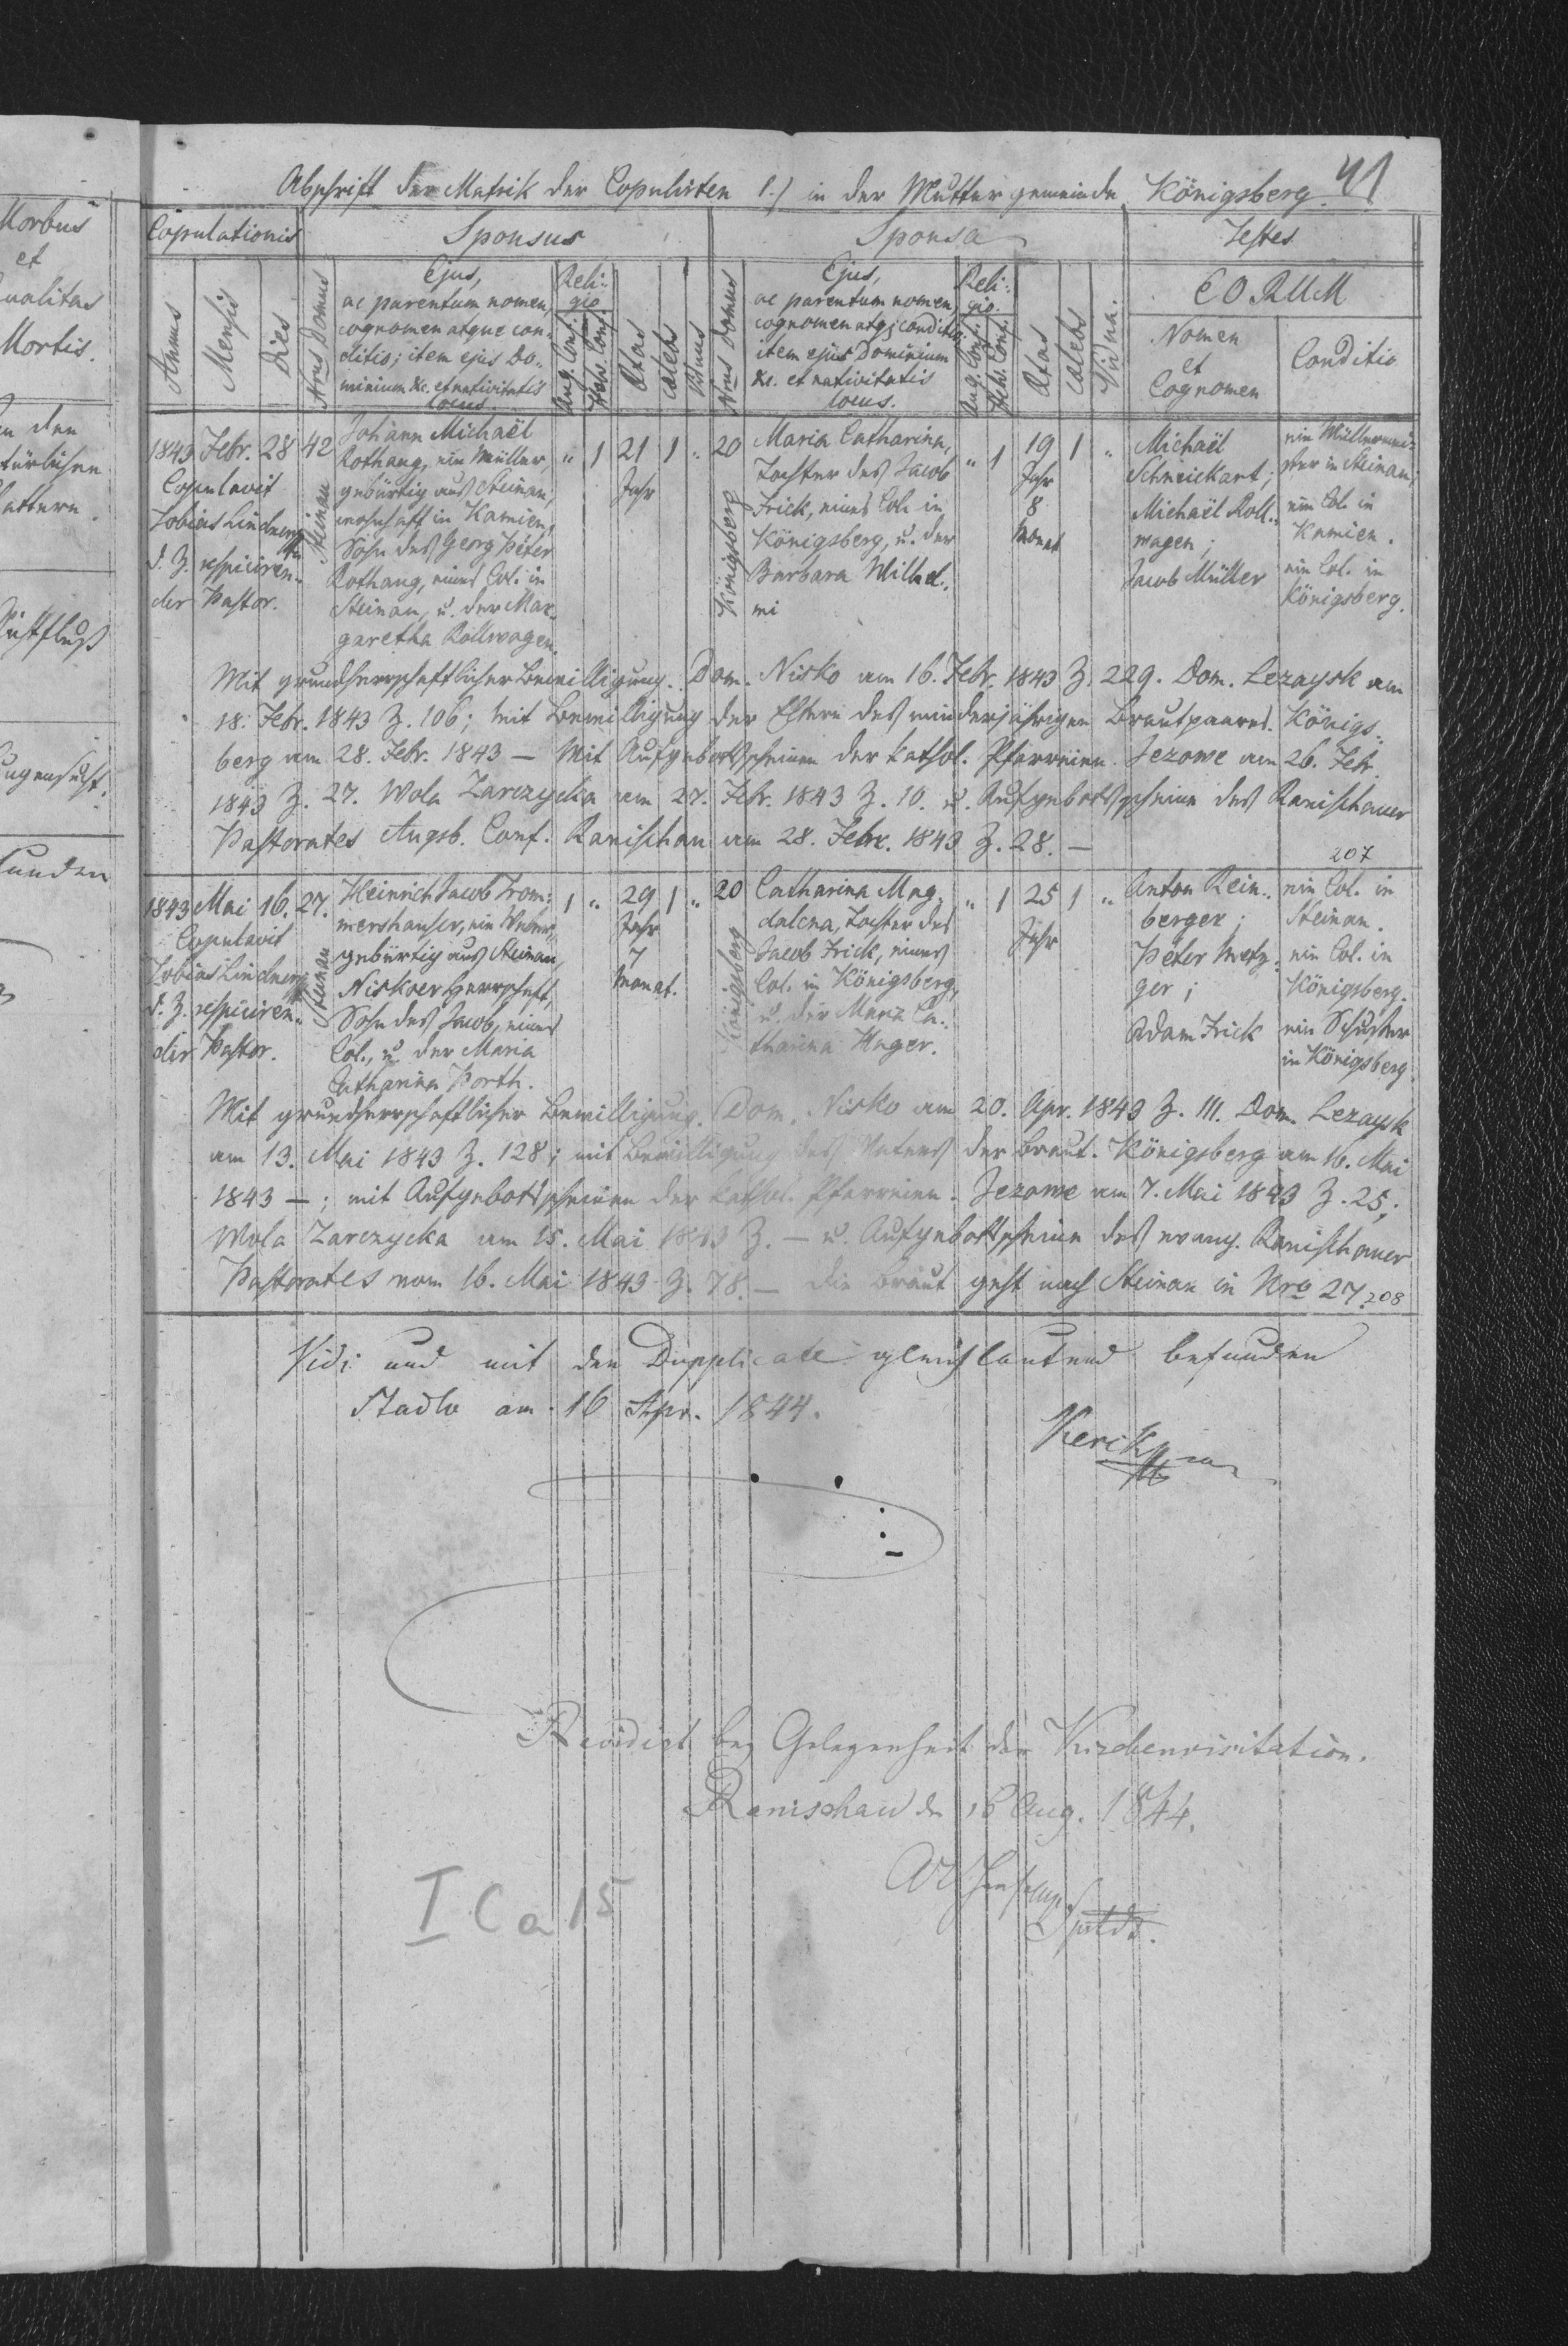 Morbus
et
Qualitas
Mortis.
den
türlichen
Blattern.
Augensucht.
funden
41
Abschrift der Matrik der Copulirten 1.) in der Muttergemeinde Königsberg.
Copulationis
Sponsus
Sponsa
Testes
EORUM
Annus
Mensis
Dies
Nrus Domus
Ejus,
ac parentum nomen,
cognomen atque con-
ditio; item ejus Do-
minium &c. et nativitatis
locus.
Reli-
gio.
Aug. Conf.
Helv. Conf.
Aetas
Caelebs
Viduus
Nrus Domus
Ejus,
ac parentum nomen
cognomen atq; conditio;
item ejus Dominium
&c. et nativitatis
locus.
Reli-
gio.
Aug. Conf.
Helv. Conf.
Aetas
Caelebs
Vidua.
Nomen
et
Cognomen
Conditio
1843 Febr. 28
Copulavit
Tobias Lindner
d. Z. respiciren-
der Pastor.
42
Steinau
Johann Michaël
Rothaug, ein Müller,
gebürtig aus Steinau,
wohnhaft in Kamien,
Sohn des Georg Peter
Rothaug, eines Col. in
Steinau, u. der Mar-
garetha Rollwagen.
" 1
21
Jahr
1 "
20
Königsberg
Maria Catharina,
Tochter des Jacob
Frick, eines Col. in
Königsberg, u. der
Barbara Wilhel-
mi
" 1
19
Jahr
8
Monat
1 "
Michaël
Schneickart;
Michaël Roll-
wagen;
Jacob Müller
ein Müllermei-
ster in Steinau;
ein Col. in
Kamien.
ein Col. in
Königsberg.
Mit grundherrschaftlicher Bewilligung. Dom. Nisko am 16. Febr. 1843 Z. 229. Dom. Lezaysk am
18. Febr. 1843 Z. 106; mit Bewilligung der Eltern des minderjährigen Brautpaares. Königs-
berg am 28. Febr. 1843 — Mit Aufgebotsscheinen der kathol. Pfarreien. Jezowe am 26. Febr.
1843 Z. 27. Wola Zarczycka am 27. Febr. 1843 Z. 10. u. Aufgebotsscheine des Ranischauer
Pastorates Augsb. Conf. Ranischau am 28. Febr. 1843 Z. 28. —
207
1843 Mai 16.
Copulavit
Tobias Lindner
d. Z. respiciren-
der Pastor.
27.
Steinau
Heinrich Jacob Trom-
mershauser, ein Weber,
gebürtig aus Steinau,
Niskoer Herrschaft,
Sohn des Jacob, eines
Col., u. der Maria
Catharina Porth.
1 "
29
Jahr
7
Monat.
1 "
20
Königsberg
Catharina Mag-
dalena, Tochter des
Jacob Frick, eines
Col. in Königsberg,
u. der Maria Ca-
tharina Unger.
" 1
25
Jahr
1 "
Anton Rein-
berger;
Peter Metz-
ger;
Adam Frick
ein Col. in
Steinau.
ein Col. in
Königsberg.
ein Schuster
in Königsberg
Mit grundherrschaftlicher Bewilligung. Dom. Nisko am 20. Apr. 1843 Z. 111. Dom. Lezaysk
am 13. Mai 1843 Z. 128; mit Bewilligung des Vaters der Braut. Königsberg am 16. Mai
1843 —; mit Aufgebotsscheinen der kathol. Pfarreien. Jezowe am 7. Mai 1843 Z. 25;
Wola Zarczycka am 15. Mai 1843 Z. — u. Aufgebottscheine des evang. Ranischauer
Pastorates vom 16. Mai 1843 Z. 78. — Die Braut geht nach Steinau in Nro 27.
208
Vidi und mit den Dupplicate gleichlautend befunden
Stadlo am 16 Apr. 1844.
Revidirt bey Gelegenheit der Kirchenvisitation.
Ranischau d. 16 Aug. 1844.
I C a 15